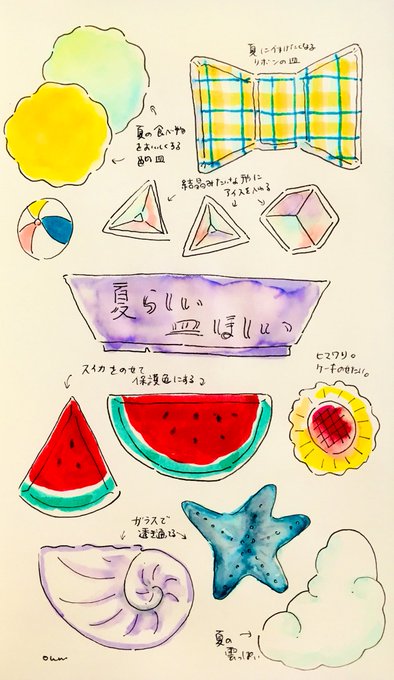 夏に付けたくなる
リボンの皿
夏の食べ物
をおいしくする
皿
結晶みたいな形に
アイスを入れる
夏らしい
皿ほしい
スイカをのせて
保護色にする
ヒマワリ。
ケーキのせたい。
ガラスで
透き通る
夏の
雲っぽい